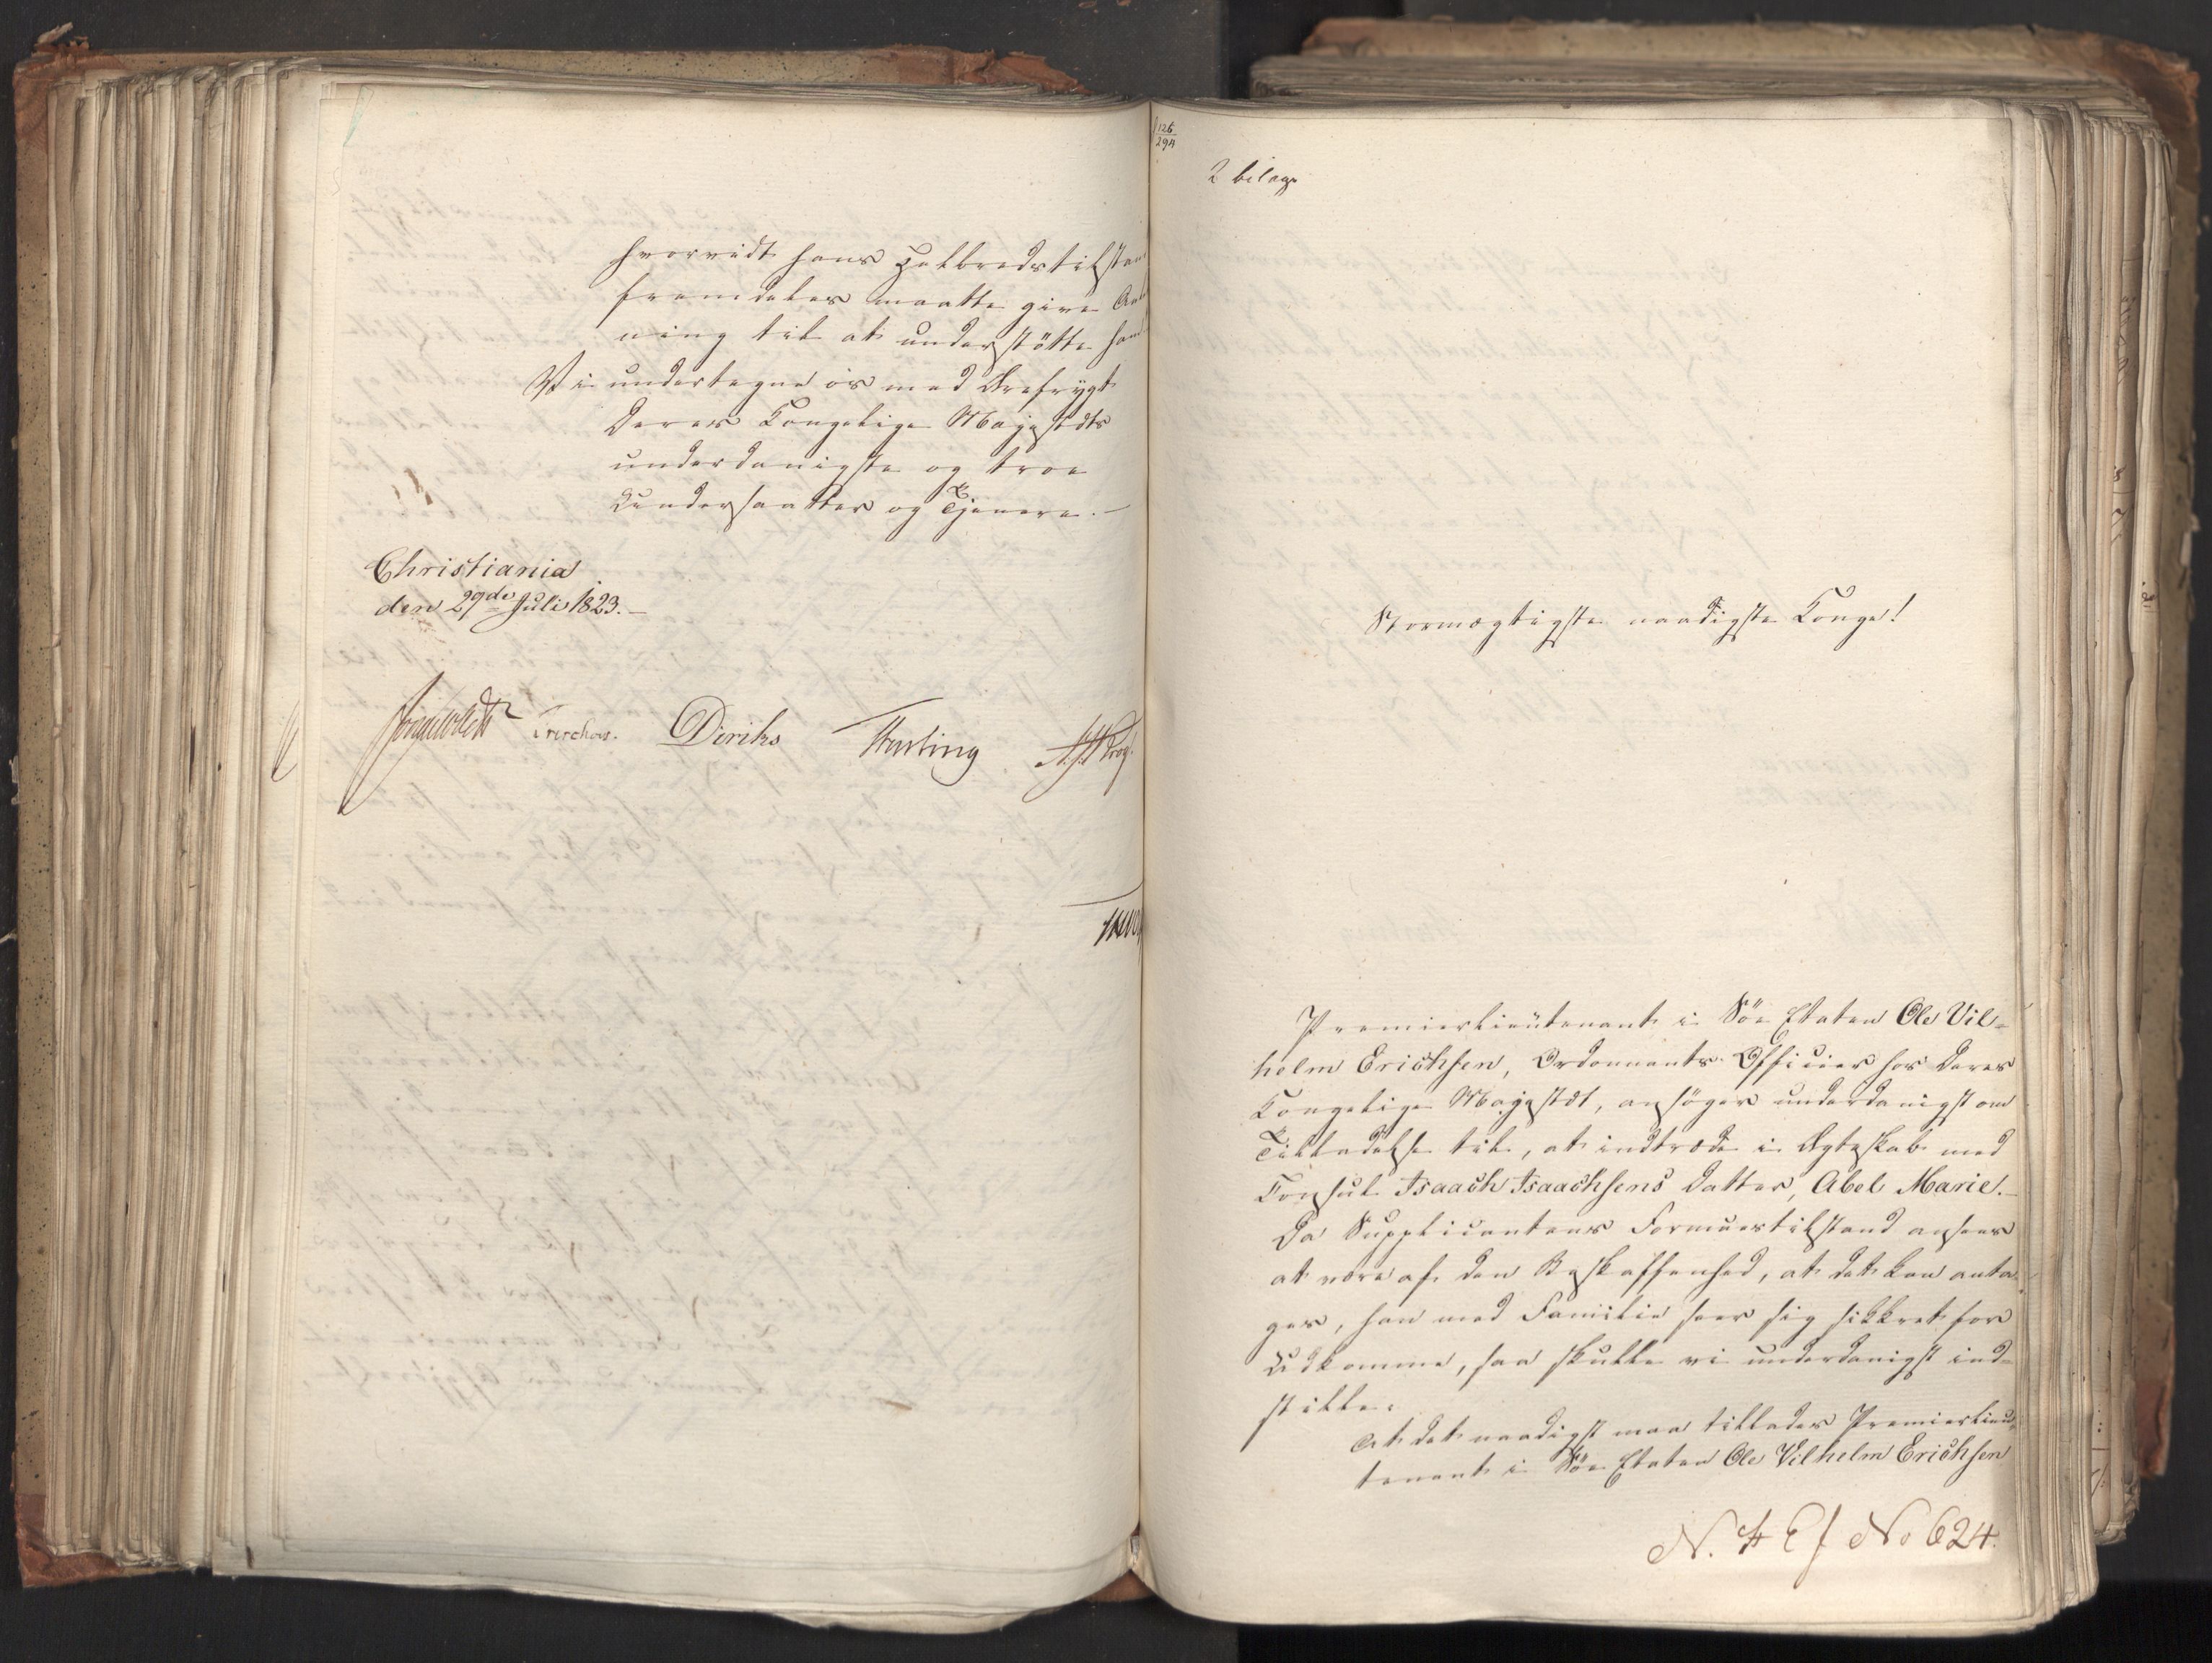 hvorvidt hans Helbredstilstan
fremdeles maatte give An
ning til at understøtte ham
Vi undertegne os med Ærefrygt
Deres Kongelige Majestæts
underdanigste og troe
Undersaatter og Tjenere.
Christiania
den 29de Juli 1823.
Treschow. Diriks Fasting
126
294
2 bilage
Stormægtigste naadigste Konge!
Premierlieutenant i Søe Etaten Ole Vil=
helm Erichsen, Ordonnants-Officier hos Deres
Kongelige Majestæt, ansøger underdanigst om
Tilladelse til, at indtræde i Ægteskab med
Consul Isaach Isaachsens Datter, Abel Marie.
Da Supplicantens Formuestilstand ansees
at være af den Beskaffenhed, at det kan anta
ges, han med Familie seer sig sikkret for
Udkomme, saa skulle vi underdanigst ind=
stille:
At det naadigst maa tillades Premierlieu=
tenant i Søe Etaten Ole Vilhelm Erichsen
No 624.